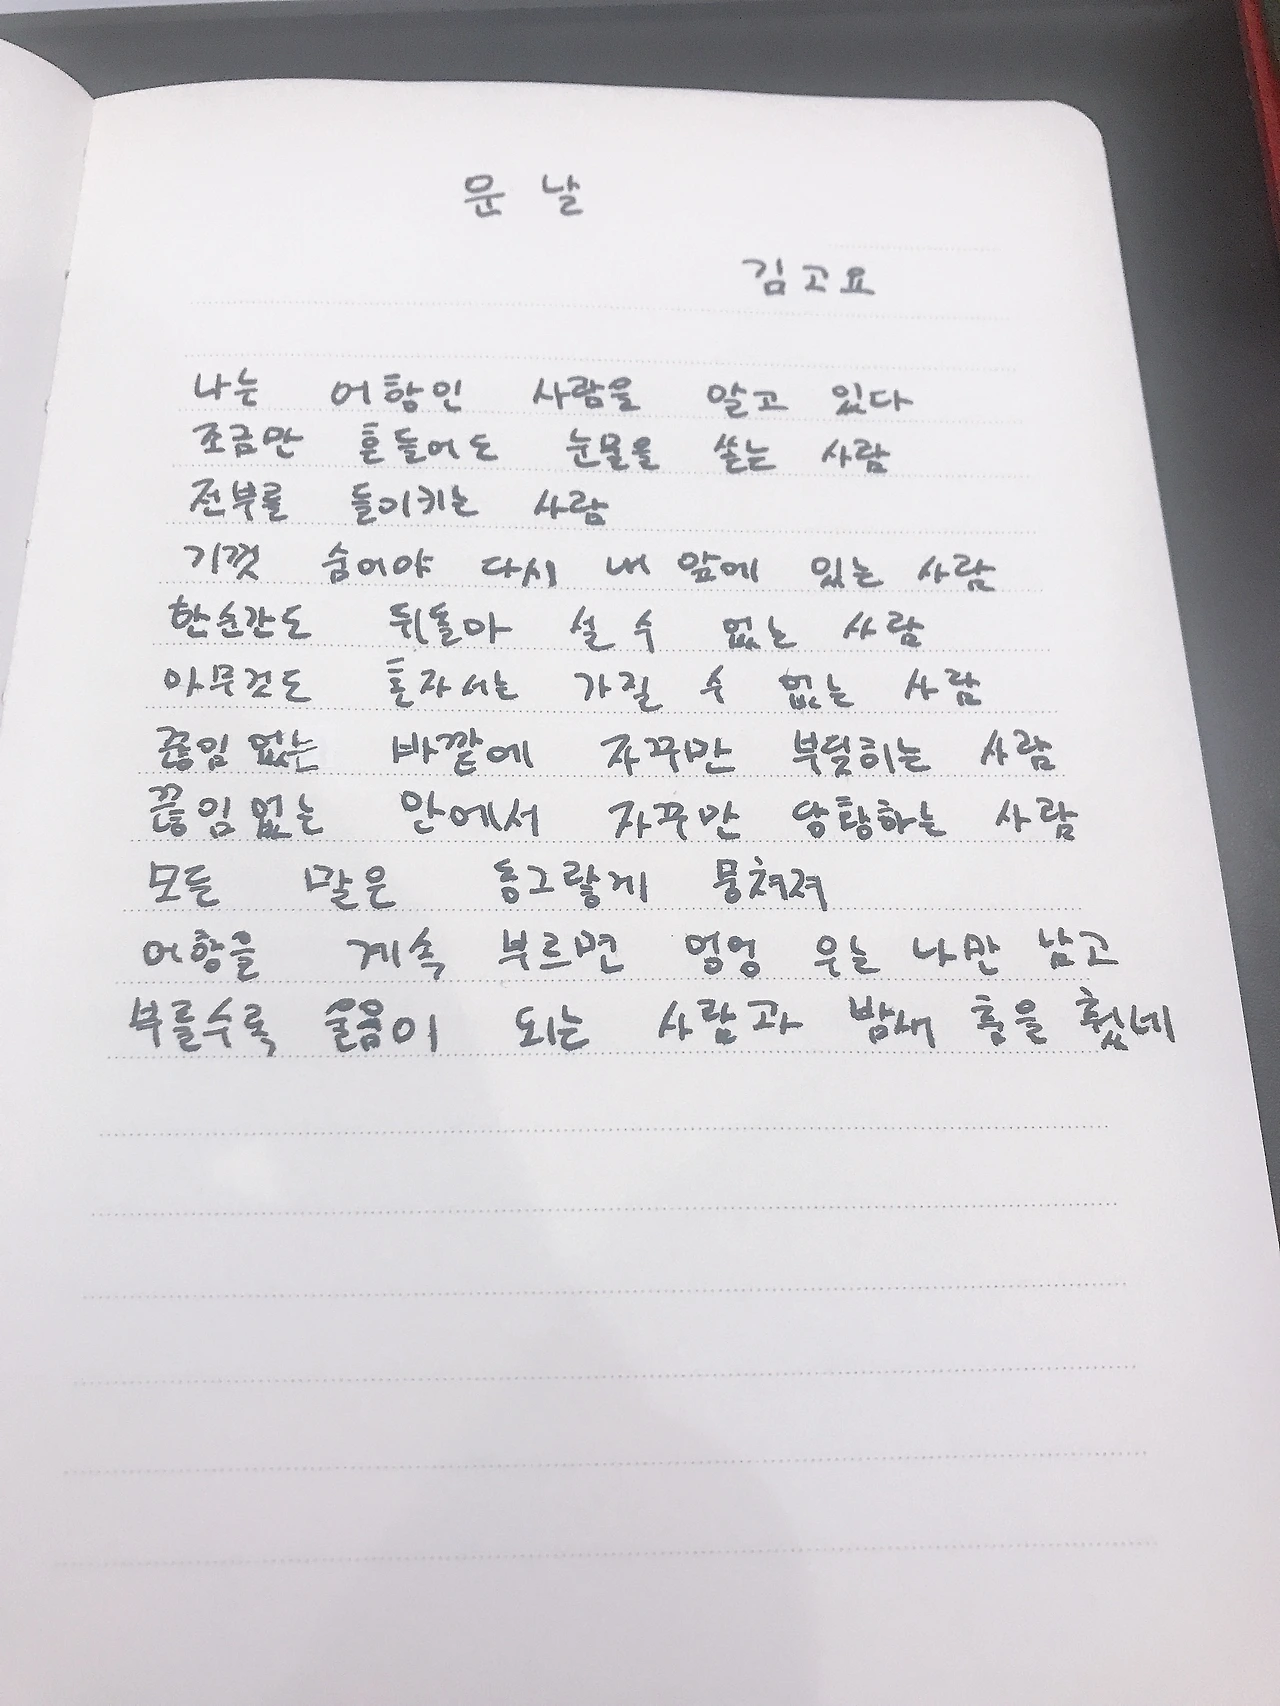 운 날
김고요
나는 어항인 사람을 알고 있다
조금만 흔들어도 눈물을 쏟는 사람
전부를 들이키는 사람
기껏 숨어야 다시 내 앞에 있는 사람
한순간도 뒤돌아 설 수 없는 사람
아무것도 혼자서는 가질 수 없는 사람
끊임없는 바깥에 자꾸만 부딪히는 사람
끊임없는 안에서 자꾸만 당황하는 사람
모든 말은 동그랗게 뭉쳐져
어항을 계속 부르면 엉엉 우는 나만 남고
부를수록 울음이 되는 사람과 밤새 춤을 췄네